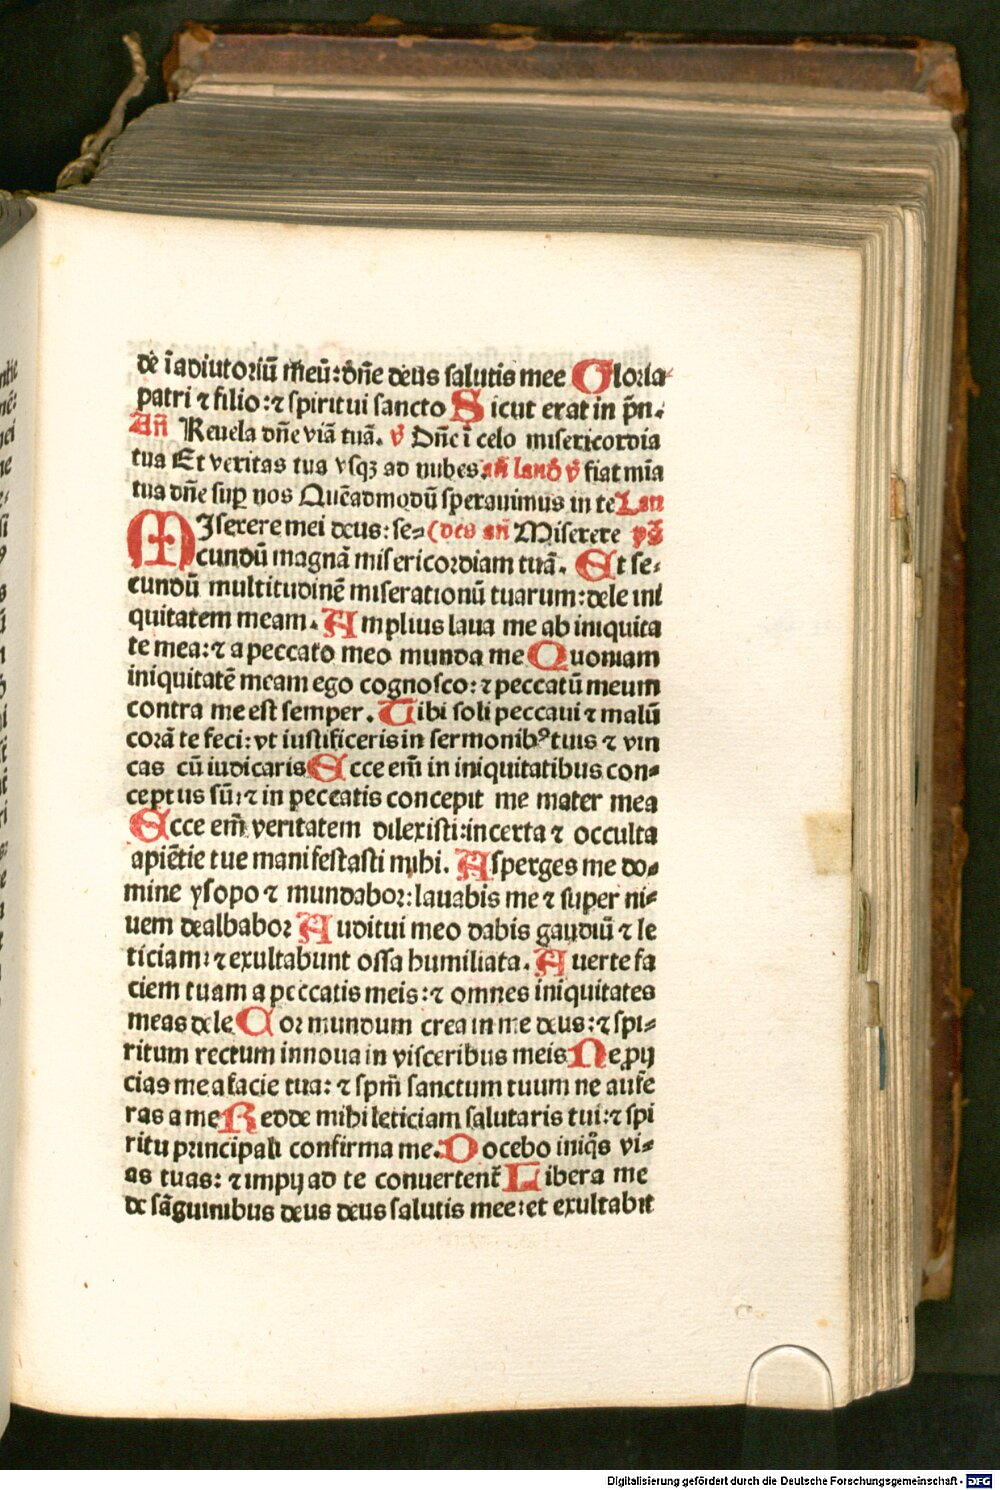 de ī adiutoriū meū: dn̄e deus salutis mee Gloria
patri ⁊ filio: ⁊ spiritui sancto Sicut erat in pn̄.
Añ Reuela dn̄e viā tuā. ꝟ Dn̄e ī celo misericordia
tua Et veritas tua vsqꝫ ad nubes. añ laud ꝟ fiat mīa
tua dn̄e suꝑ nos Quēadmodū sperauimus in te Lau
MIserere mei deus: se⸗ (des añ Miserere pš
cundū magnā misericordiam tuā. Et se⸗
cundū multitudinē miserationū tuarum: dele ini
quitatem meam. Amplius laua me ab iniquita
te mea: ⁊ a peccato meo munda me Quoniam
iniquitatē meam ego cognosco: ⁊ peccatū meum
contra me est semper. Tibi soli peccaui ⁊ malū
corā te feci: vt iustificeris in sermonibꝰ tuis ⁊ vin
cas cū iudicaris Ecce em̄ in iniquitatibus con⸗
ceptus sū: ⁊ in peccatis concepit me mater mea
Ecce em̄ veritatem dilexisti: incerta ⁊ occulta
apiētie tue manifestasti mihi. Asperges me do⸗
mine ysopo ⁊ mundabor: lauabis me ⁊ super ni⸗
uem dealbabor Auditui meo dabis gaudiū ⁊ le
ticiam: ⁊ exultabunt ossa humiliata. Auerte fa
ciem tuam a peccatis meis: ⁊ omnes iniquitates
meas dele Cor mundum crea in me deus: ⁊ spi⸗
ritum rectum innoua in visceribus meis Ne ꝓij
cias me a facie tua: ⁊ spm̄ sanctum tuum ne aufe
ras a me Redde mihi leticiam salutaris tui: ⁊ spi
ritu principali confirma me. Docebo iniq̄s vi⸗
as tuas: ⁊ impij ad te conuertent᷑ Libera me
de sāguinibus deus deus salutis mee: et exultabit
Digitalisierung gefördert durch die Deutsche Forschungsgemeinschaft - DFG